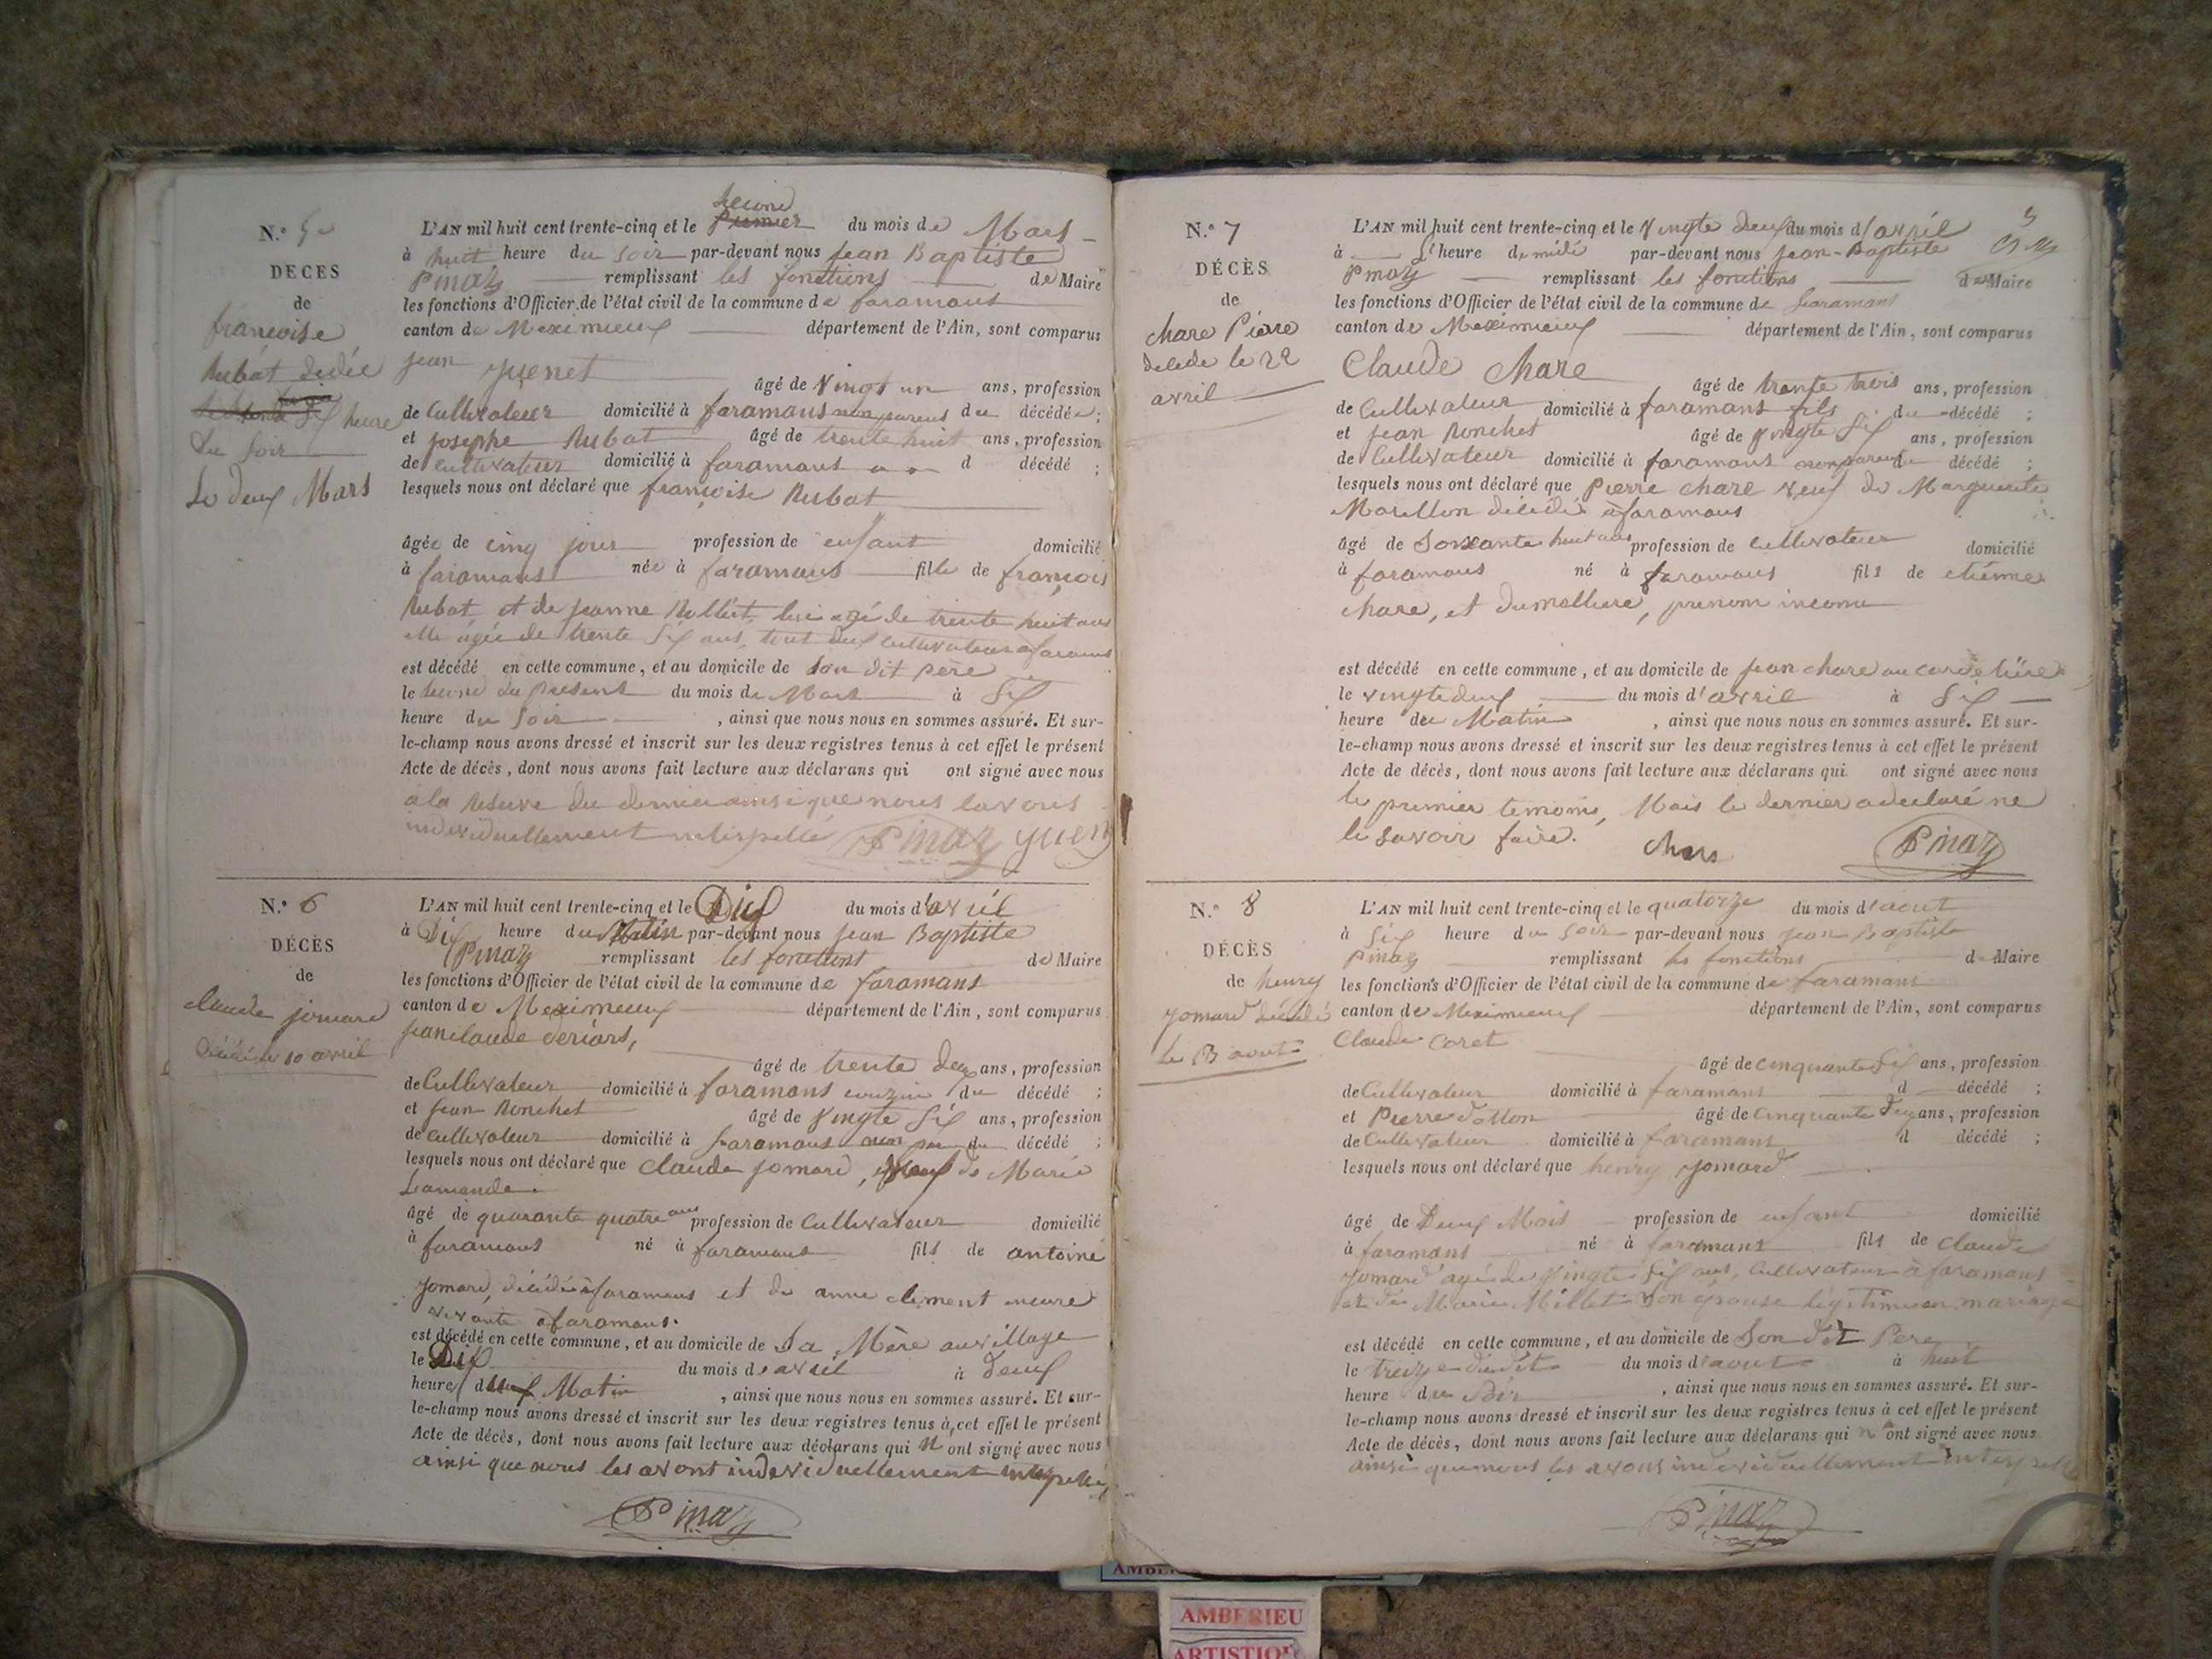 N.° 5
DECES
de
françoise
Rubat dédée
heure
du soir
Le deux Mars
second
L'AN mil huit cent trente-cinq et le Premier du mois de Mars
à huit heure du soir par-devant nous jean Baptiste
Pinaz remplissant les fonctions de Maire
les fonctions d'Officier de l'état civil de la commune de faramans
canton de Meximieux département de l'Ain, sont comparus
jean yuenet
âgé de Vingt un ans, profession
de Cultivateur domicilié à faramans non parens du décédée ;
et josephe Rubat âgé de trente huit ans, profession
de cultivateur domicilié à faramans d décédé ;
lesquels nous ont déclaré que françoise Rubat
âgée de cinq jours profession de enfant domicilié
à faramans née à faramans fille de françois
Rubat et de jeanne Rollet, lui agé de trente huit ans
elle agée de trente six ans, tout deux cultivateurs a faramans
est décédé en cette commune, et au domicile de son dit père
le second du présent du mois de Mars à six
heure du soir , ainsi que nous nous en sommes assuré. Et sur-
le-champ nous avons dressé et inscrit sur les deux registres tenus à cet effet le présent
Acte de décès, dont nous avons fait lecture aux déclarans qui ont signé avec nous
a la reserve du dernier ainsi que nous lavons
individuellement interpellé Pinaz yuen
N.° 6
DÉCÈS
de
claude jomard
décédé le 10 avril
L'AN mil huit cent trente-cinq et le Dix du mois d'avril
à Dix heure du Matin par-devant nous jean Baptiste
Pinaz remplissant les fonctions de Maire
les fonctions d'Officier de l'état civil de la commune de faramans
canton de Meximieux département de l'Ain, sont comparus
jean claude veriars,
âgé de trente deux ans, profession
de Cultivateur domicilié à faramans couzin du décédé ;
et jean Ronchet âgé de Vingte Six ans, profession
de cultivateur domicilié à faramans non par du décédé ;
lesquels nous ont déclaré que claude jomard, veuf de Marie
Lamande
âgé de quarante quatre ans profession de Cultivateur domicilié
à faramans né à faramans fils de antoine
jomard, décédé a faramans et de anne clement encore
vivante a faramans.
est décédé en cette commune, et au domicile de Sa Mère au village
le Dix du mois de avril à deux
heure du Matin , ainsi que nous nous en sommes assuré. Et sur-
le-champ nous avons dressé et inscrit sur les deux registres tenus à cet effet le présent
Acte de décès, dont nous avons fait lecture aux déclarans qui n ont signé avec nous
ainsi que nous les avons individuellement interpellé,
Pinaz
N.° 7
DÉCÈS
de
chare Pierre
décédé le 22
avril
L'AN mil huit cent trente-cinq et le Vingte deux du mois d'avril
à l'heure de midi par-devant nous jean-Baptiste
Pinaz remplissant les fonctions de Maire
les fonctions d'Officier de l'état civil de la commune de faramans
canton de Meximieux département de l'Ain, sont comparus
Claude chare
âgé de trente trois ans, profession
de Cultivateur domicilié à faramans fils du décédé ;
et jean Ronchet âgé de Vingte Six ans, profession
de Cultivateur domicilié à faramans non parent du décédé ;
lesquels nous ont déclaré que pierre chare veuf de Marguerite
Marillon décédé a faramans
âgé de Soixante huit ans profession de cultivateur domicilié
à faramans né à faramans fils de etienne
chare, et dumollure, prenom inconnu
est décédé en cette commune, et au domicile de jean chare au
le vingte deux du mois d'avril à Six
heure du Matin , ainsi que nous nous en sommes assuré. Et sur-
le-champ nous avons dressé et inscrit sur les deux registres tenus à cet effet le présent
Acte de décès, dont nous avons fait lecture aux déclarans qui ont signé avec nous
le premier temoins, Mais le dernier a declaré ne
le savoir faire. Chare Pinaz
N.° 8
DÉCÈS
de henry
yomard décédé
le 13 aout
L'AN mil huit cent trente-cinq et le quatorze du mois d'aout
à Six heure du soir par-devant nous jean Baptiste
Pinaz remplissant les fonctions de Maire
les fonctions d'Officier de l'état civil de la commune de faramans
canton de Meximieux département de l'Ain, sont comparus
Claude Coret
âgé de cinquante Six ans, profession
de Cultivateur domicilié à faramans d décédé ;
et Pierre dollon âgé de Cinquante Deux ans, profession
de Cultivateur domicilié à faramans d décédé ;
lesquels nous ont déclaré que henry yomard
âgé de Deux Mois profession de enfant domicilié
à faramans né à faramans fils de Claude
yomard agé de Vingte Six ans, Cultivateur a faramans
et de Marie Millet son épouse légitime en mariage
est décédé en cette commune, et au domicile de Son dit Pere
le treize dudit du mois d'aout à huit
heure du Soir , ainsi que nous nous en sommes assuré. Et sur-
le-champ nous avons dressé et inscrit sur les deux registres tenus à cet effet le présent
Acte de décès, dont nous avons fait lecture aux déclarans qui n ont signé avec nous
ainsi que nous les avons individuellement interpellé
Pinaz
AMBERIEU
ARTISTIQ